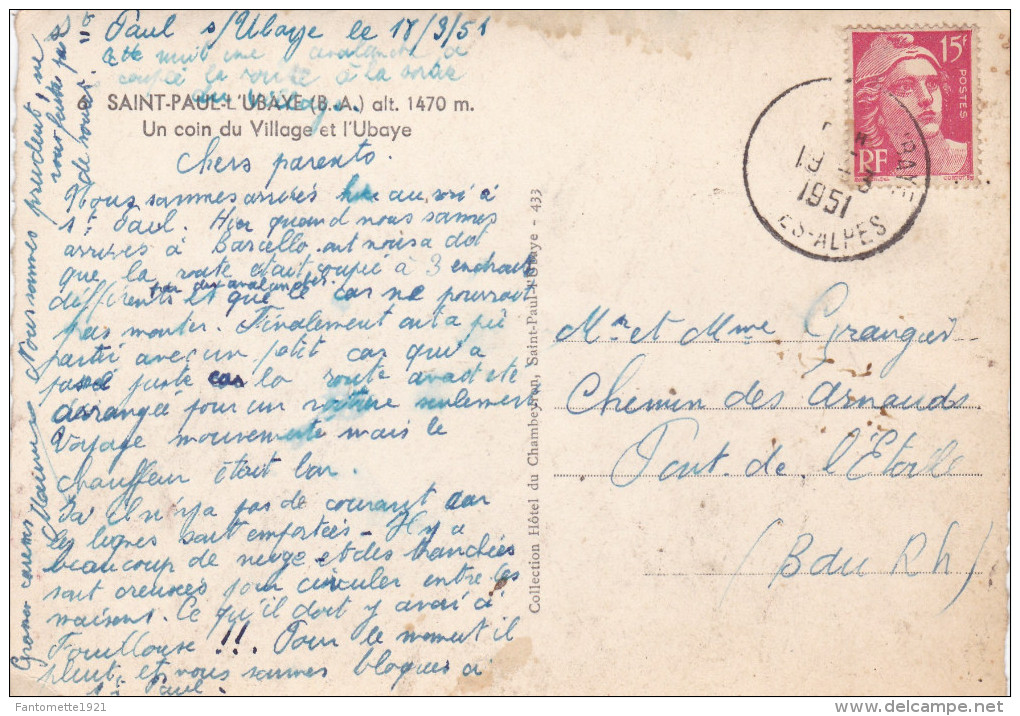 St Paul s/Ubaye le 18/3/51
Cette nuit une avalanche a
coupé la route à la sortie
du village
SAINT-PAUL-L'UBAYE (B.A.) alt. 1470 m.
Un coin du Village et l'Ubaye
Chers parents.
Nous sommes arrivés hier au soir à
St Paul. Hier quand nous sommes
arrivés à Barcello. ont nous a dit
que la route était coupée à 3 endroits
différents par des avalanches. et que le car ne pouvait
pas monter. Finalement ont a pu
partir avec un petit car qui a
passé juste car la route avait été
arrangée pour un voiture seulement
Voyage mouvementé mais le
chauffeur était bon.
Ici il n'y a pas de courant car
les lignes sont emportées - Il y a
beaucoup de neige et des tranchées
sont creusées pour circuler entre les
maisons. Ce qu'il doit y avoir à
Fouillouse !!! Pour le moment il
pleut et nous sommes bloqués à
St Paul.
Nous sommes prudent, ne
vous faites pas
de souci.
Collection Hôtel du Chambeyron, Saint-Paul-l'Ubaye - 433
15F
POSTES
RF
UBAYE
19 -3
1951
ES-ALPES
Mr et Mme Granguer
Chemin des Arnauds
Pont. de l'Etoile
(B du Rh)
Fantomette1921
delcampe.net